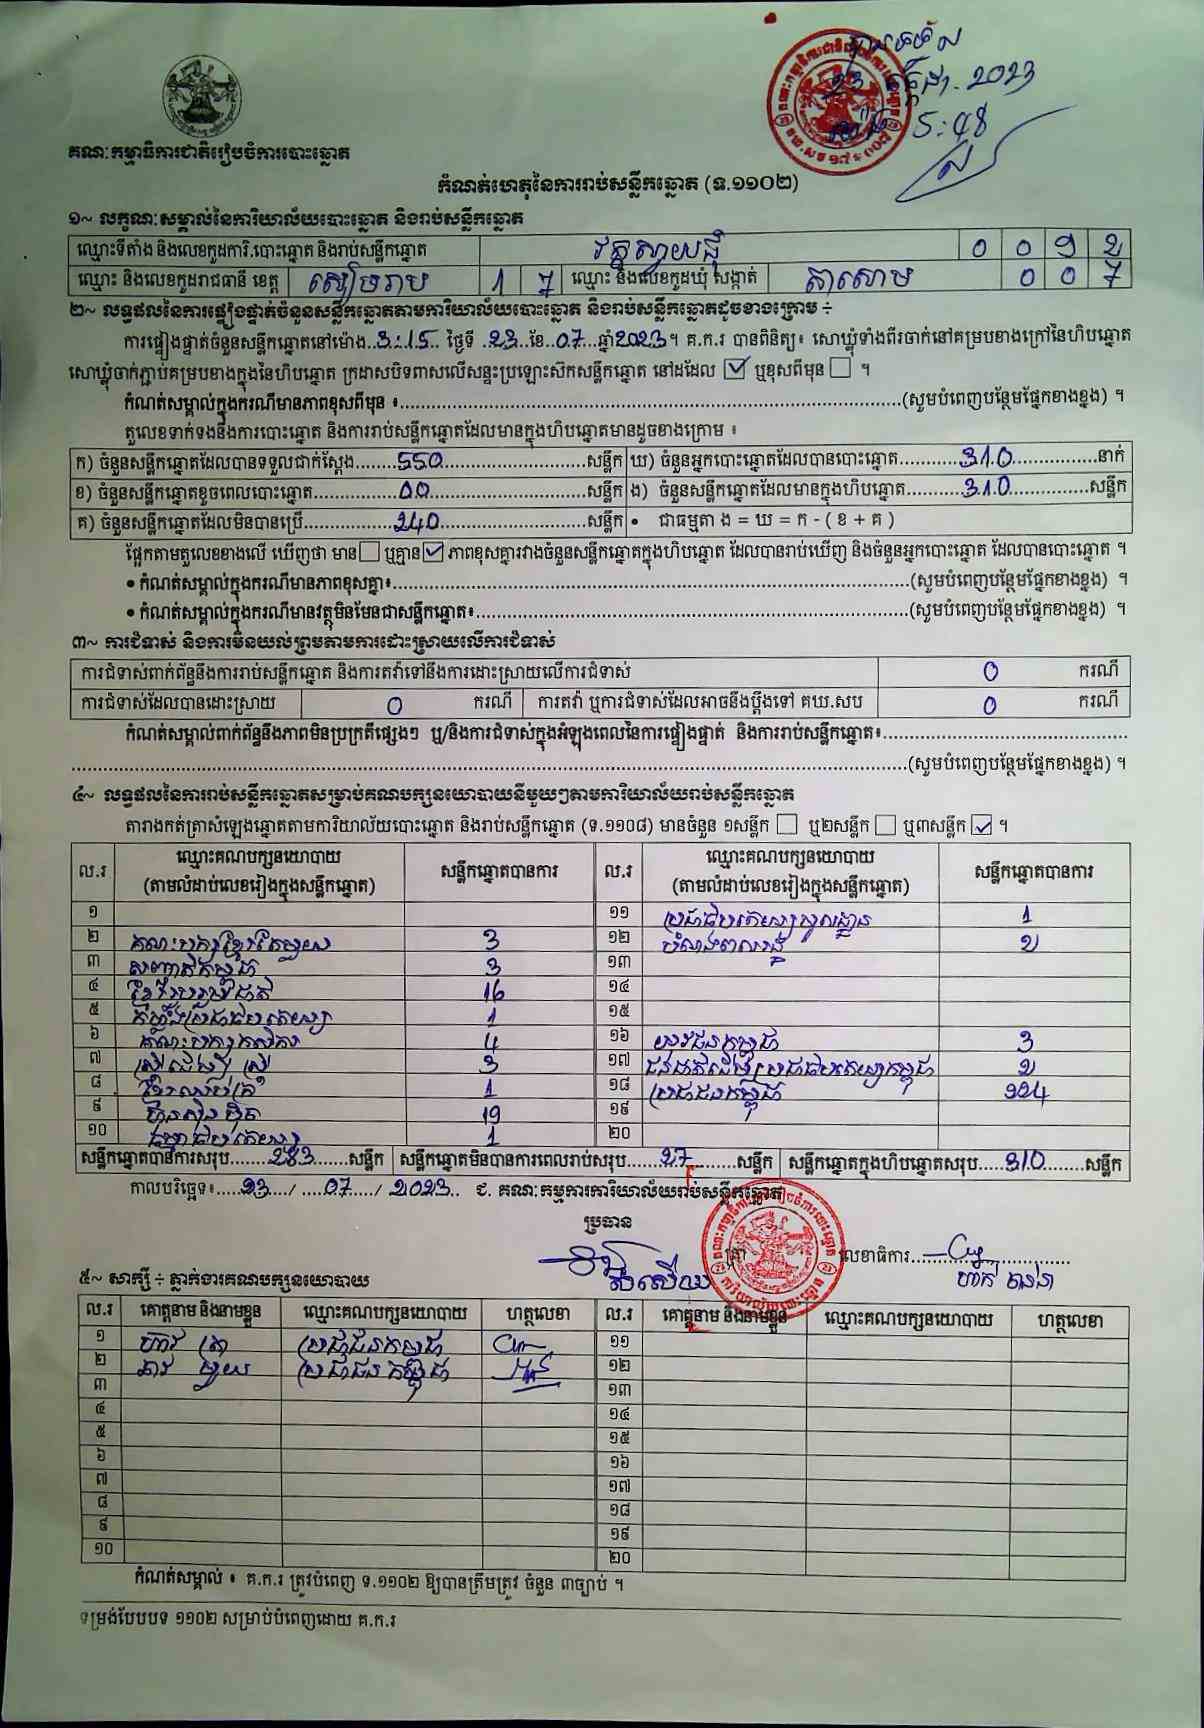 បានទទួល
23 កក្កដា. 2023
ម៉ោង 5:48
គណៈកម្មាធិការជាតិរៀបចំការបោះឆ្នោត
កំណត់ហេតុនៃការរាប់សន្លឹកឆ្នោត (ទ.១១០២)
១~ លក្ខណៈសម្គាល់នៃការិយាល័យបោះឆ្នោត និងរាប់សន្លឹកឆ្នោត
ឈ្មោះទីតាំង និងលេខកូដការិ.បោះឆ្នោត និងរាប់សន្លឹកឆ្នោត វត្តស្វាយជ្រុំ 0 0 9 2
ឈ្មោះ និងលេខកូដរាជធានី ខេត្ត សៀមរាប 1 7 ឈ្មោះ និងលេខកូដឃុំ សង្កាត់ តាសោម 0 0 7
២~ លទ្ធផលនៃការផ្ទៀងផ្ទាត់ចំនួនសន្លឹកឆ្នោតតាមការិយាល័យបោះឆ្នោត និងរាប់សន្លឹកឆ្នោតដូចខាងក្រោម ÷
ការផ្ទៀងផ្ទាត់ចំនួនសន្លឹកឆ្នោតនៅម៉ោង..3:15.. ថ្ងៃទី ..23..ខែ..07..ឆ្នាំ2023។ គ.ក.រ បានពិនិត្យ៖ សោឃ្លុំទាំងពីរចាក់នៅគម្របខាងក្រៅនៃហិបឆ្នោត
សោឃ្លុំចាក់ភ្ជាប់គម្របខាងក្នុងនៃហិបឆ្នោត ក្រដាសបិទពាសលើសន្ទះប្រឡោះស៊កសន្លឹកឆ្នោត នៅដដែល ☑ ឬខុសពីមុន ☐ ។
កំណត់សម្គាល់ក្នុងករណីមានភាពខុសពីមុន ៖..........(សូមបំពេញបន្ថែមផ្នែកខាងខ្នង) ។
តួលេខទាក់ទងនឹងការបោះឆ្នោត និងការរាប់សន្លឹកឆ្នោតដែលមានក្នុងហិបឆ្នោតមានដូចខាងក្រោម ៖
ក) ចំនួនសន្លឹកឆ្នោតដែលបានទទួលជាក់ស្តែង.......550.......សន្លឹក ឃ) ចំនួនអ្នកបោះឆ្នោតដែលបានបោះឆ្នោត.......310.......នាក់
ខ) ចំនួនសន្លឹកឆ្នោតខូចពេលបោះឆ្នោត.......00.......សន្លឹក ង) ចំនួនសន្លឹកឆ្នោតដែលមានក្នុងហិបឆ្នោត.......310.......សន្លឹក
គ) ចំនួនសន្លឹកឆ្នោតដែលមិនបានប្រើ.......240.......សន្លឹក • ជាធម្មតា ង = ឃ = ក - ( ខ + គ )
ផ្អែកតាមតួលេខខាងលើ ឃើញថា មាន ☐ ឬគ្មាន ☑ ភាពខុសគ្នារវាងចំនួនសន្លឹកឆ្នោតក្នុងហិបឆ្នោត ដែលបានរាប់ឃើញ និងចំនួនអ្នកបោះឆ្នោត ដែលបានបោះឆ្នោត ។
• កំណត់សម្គាល់ក្នុងករណីមានភាពខុសគ្នា៖..........(សូមបំពេញបន្ថែមផ្នែកខាងខ្នង) ។
• កំណត់សម្គាល់ក្នុងករណីមានវត្ថុមិនមែនជាសន្លឹកឆ្នោត៖..........(សូមបំពេញបន្ថែមផ្នែកខាងខ្នង) ។
៣~ ការជំទាស់ និងការមិនយល់ព្រមតាមការដោះស្រាយលើការជំទាស់
ការជំទាស់ពាក់ព័ន្ធនឹងការរាប់សន្លឹកឆ្នោត និងការតវ៉ាទៅនឹងការដោះស្រាយលើការជំទាស់ 0 ករណី
ការជំទាស់ដែលបានដោះស្រាយ 0 ករណី ការតវ៉ា ឬការជំទាស់ដែលអាចនឹងប្តឹងទៅ គឃ.សប 0 ករណី
កំណត់សម្គាល់ពាក់ព័ន្ធនឹងភាពមិនប្រក្រតីផ្សេងៗ ឬ/និងការជំទាស់ក្នុងអំឡុងពេលនៃការផ្ទៀងផ្ទាត់ និងការរាប់សន្លឹកឆ្នោត៖..........
..........(សូមបំពេញបន្ថែមផ្នែកខាងខ្នង) ។
៤~ លទ្ធផលនៃការរាប់សន្លឹកឆ្នោតសម្រាប់គណបក្សនយោបាយនីមួយៗតាមការិយាល័យរាប់សន្លឹកឆ្នោត
តារាងកត់ត្រាសំឡេងឆ្នោតតាមការិយាល័យបោះឆ្នោត និងរាប់សន្លឹកឆ្នោត (ទ.១១០៨) មានចំនួន ១សន្លឹក ☐ ឬ២សន្លឹក ☐ ឬ៣សន្លឹក ☑ ។
ល.រ ឈ្មោះគណបក្សនយោបាយ (តាមលំដាប់លេខរៀងក្នុងសន្លឹកឆ្នោត) សន្លឹកឆ្នោតបានការ ល.រ ឈ្មោះគណបក្សនយោបាយ (តាមលំដាប់លេខរៀងក្នុងសន្លឹកឆ្នោត) សន្លឹកឆ្នោតបានការ
១ ១១ ប្រជាធិបតេយ្យមូលដ្ឋាន 1
២ គណៈបក្សខ្មែរតែមួយ 3 ១២ បំណងពលរដ្ឋ 2
៣ សញ្ជាតិកម្ពុជា 3 ១៣
៤ ខ្មែររួបរួមជាតិ 16 ១៤
៥ កម្លាំងប្រជាធិបតេយ្យ 1 ១៥
៦ គណៈបក្សកសិករ 4 ១៦ យុវជនកម្ពុជា 3
៧ ស្រ្តីដើម្បីស្រ្តី 3 ១៧ ជនជាតិដើមប្រជាធិបតេយ្យកម្ពុជា 2
៨ ខ្មែរឈប់ក្រ 1 ១៨ ប្រជាជនកម្ពុជា 224
៩ ហ៊្វុនស៊ិនប៉ិច 19 ១៩
១០ ធម្មាធិបតេយ្យ 1 ២០
សន្លឹកឆ្នោតបានការសរុប.......283.......សន្លឹក សន្លឹកឆ្នោតមិនបានការពេលរាប់សរុប.......27.......សន្លឹក សន្លឹកឆ្នោតក្នុងហិបឆ្នោតសរុប.......310.......សន្លឹក
កាលបរិច្ឆេទ៖.....23...../.....07...../ 2023.. ជ. គណៈកម្មការការិយាល័យរាប់សន្លឹកឆ្នោត
ប្រធាន
ត្រា
លេខាធិការ
៥~ សាក្សី ÷ ភ្នាក់ងារគណបក្សនយោបាយ
ល.រ គោត្តនាម និងនាមខ្លួន ឈ្មោះគណបក្សនយោបាយ ហត្ថលេខា ល.រ គោត្តនាម និងនាមខ្លួន ឈ្មោះគណបក្សនយោបាយ ហត្ថលេខា
១ ប្រជាជនកម្ពុជា ១១
២ ប្រជាជនកម្ពុជា ១២
៣ ១៣
៤ ១៤
៥ ១៥
៦ ១៦
៧ ១៧
៨ ១៨
៩ ១៩
១០ ២០
កំណត់សម្គាល់ ៖ គ.ក.រ ត្រូវបំពេញ ទ.១១០២ ឱ្យបានត្រឹមត្រូវ ចំនួន ៣ច្បាប់ ។
ទម្រង់បែបបទ ១១០២ សម្រាប់បំពេញដោយ គ.ក.រ